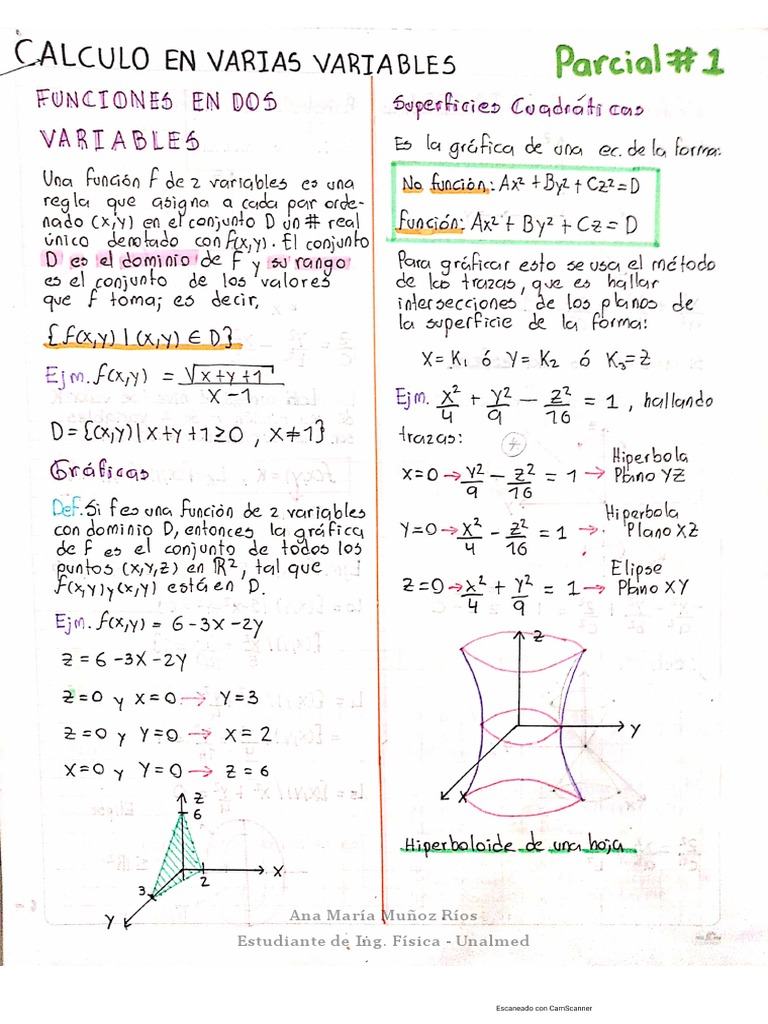 CALCULO EN VARIAS VARIABLES
Parcial #1
FUNCIONES EN DOS
VARIABLES
Una función f de 2 variables es una
regla que asigna a cada par orde-
nado (x,y) en el conjunto D un # real
único denotado con f(x,y). El conjunto
D es el dominio de f y su rango
es el conjunto de los valores
que f toma; es decir,
{f(x,y) | (x,y) ∈ D}
Ejm. f(x,y) = √(x+y+1) / (x-1)
D = {(x,y) | x+y+1 ≥ 0 , x ≠ 1}
Gráficas
Def. Si f es una función de 2 variables
con dominio D, entonces la gráfica
de f es el conjunto de todos los
puntos (x,y,z) en ℝ², tal que
f(x,y) y (x,y) está en D.
Ejm. f(x,y) = 6-3x-2y
z = 6-3x-2y
z=0 y x=0 → y=3
z=0 y y=0 → x=2
x=0 y y=0 → z=6
z
6
3
2
x
y
Superficies Cuadráticas
Es la gráfica de una ec. de la forma:
No función: Ax² + By² + Cz² = D
función: Ax² + By² + Cz = D
Para gráficar esto se usa el método
de las trazas, que es hallar
intersecciones de los planos de
la superficie de la forma:
x=K₁ ó y=K₂ ó K₃=z
Ejm. x²/4 + y²/9 - z²/16 = 1 , hallando
trazas:
x=0 → y²/9 - z²/16 = 1 → Hiperbola
Plano YZ
y=0 → x²/4 - z²/16 = 1 → Hiperbola
Plano XZ
z=0 → x²/4 + y²/9 = 1 → Elipse
Plano XY
z
y
x
Hiperboloide de una hoja
Ana María Muñoz Ríos
Estudiante de Ing. Física - Unalmed
Escaneado con CamScanner